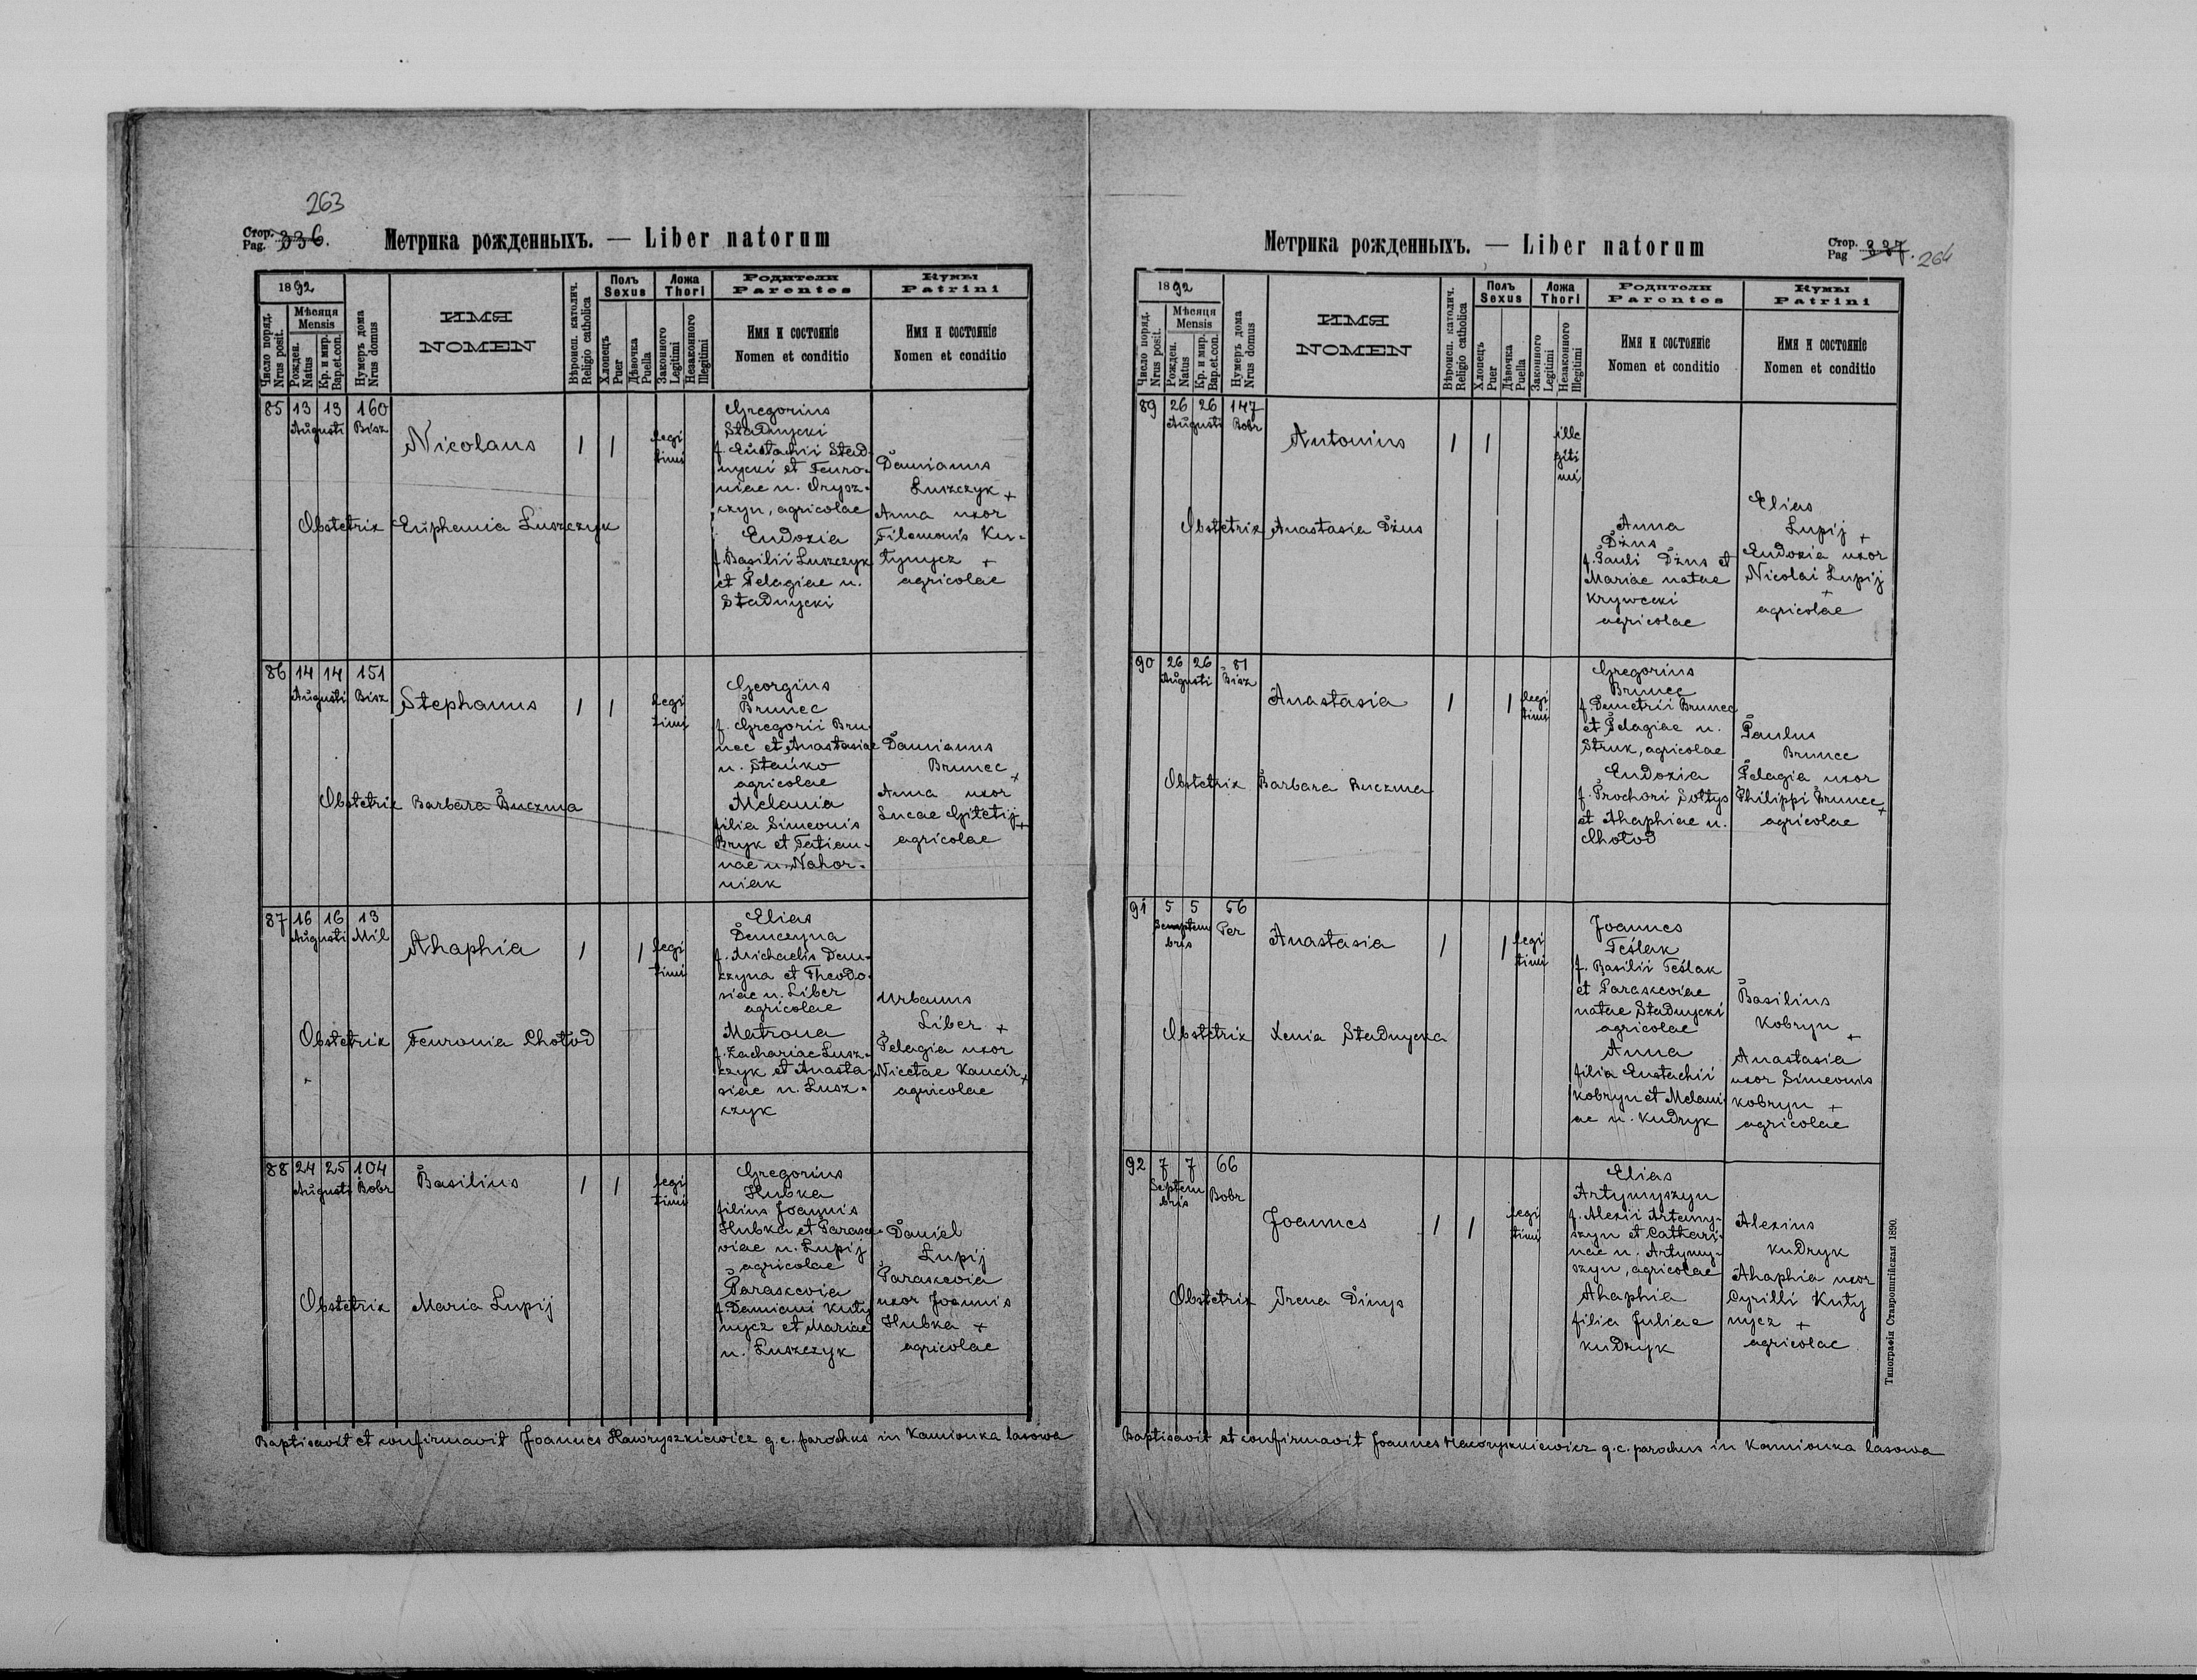 263
Стор. Pag. 336.
Метрика рожденныхъ. — Liber natorum
1892
Число поряд. Nrus posit.
Мѣсяця Mensis
Рожден. Natus
Кр. и мир. Bap. et con.
Нумеръ дома Nrus domus
ИМЯ
NOMEN
Вѣроисп. католич. Religio catholica
Полъ Sexus
Хлопецъ Puer
Дѣвочка Puella
Ложа Thori
Законного Legitimi
Незаконного Illegitimi
Родители
Parentes
Имя и состояніе
Nomen et conditio
Кумы
Patrini
Имя и состояніе
Nomen et conditio
85 13 13 160
Augusti Bisz
Nicolaus 1 1 legi
timi
Gregorius
Stadnycki
f. Eustachii Stad-
nycki et Feuro-
niae n. Orysz-
czyn, agricolae
Eudoxia
f. Basilii Łuszczyk
et Pelagiae n.
Stadnycki
Damianus
Łuszczyk +
Anna uxor
Filemonis Ku-
tynycz +
agricolae
Obstetrix Euphemia Łuszczyk
86 14 14 151
Augusti Bisz
Stephanus 1 1 legi
timi
Georgius
Brunec
f. Gregorii Bru-
nec et Anastasiae
n. Stańko
agricolae
Melania
filia Simeonis
Bryk et Tatian-
nae n. Nahor-
niak
Damianus
Brunec +
Anna uxor
Lucae Gitetij +
agricolae
Obstetrix Barbara Buczma
87 16 16 13
Augusti Mil
Ahaphia 1 1 legi
timi
Elias
Demczyna
f. Michaelis Dem-
czyna et Theodo-
siae n. Liber
agricolae
Matrona
f. Zachariae Łusz-
czyk et Anasta-
siae n. Łusz-
czyk
Urbanus
Liber +
Pelagia uxor
Nicetae Kancir +
agricolae
Obstetrix Feuronia Chołod
88 24 25 104
Augusti Bobr
Basilius 1 1 legi
timi
Gregorius
Hubka
filius Joannis
Hubka et Parasce-
viae n. Łupij
agricolae
Parascevia
f. Damiani Kuty
nycz et Mariae
n. Łuszczyk
Daniel
Łupij
Parascevia
uxor Joannis
Hubka +
agricolae
Obstetrix Maria Łupij
Baptisavit et confirmavit Joannes Hawryszkiewicz g. c. parochus in Kamionka lasowa
Метрика рожденныхъ. — Liber natorum
Стор. Pag 337. 264
1892
Число поряд. Nrus posit.
Мѣсяця Mensis
Рожден. Natus
Кр. и мир. Bap. et. con.
Нумеръ дома Nrus domus
ИМЯ
NOMEN
Вѣроисп. католич. Religio catholica
Полъ Sexus
Хлопецъ Puer
Дѣвочка Puella
Ложа Thori
Законного Legitimi
Незаконного Illegitimi
Родители
Parentes
Имя и состояніе
Nomen et conditio
Кумы
Patrini
Имя и состояніе
Nomen et conditio
89 26 26 147
Augusti Bobr
Antonius 1 1 ille
giti
mi
Anna
Dżus
f. Pauli Dżus et
Mariae natae
Krywecki
agricolae
Elias
Łupij +
Eudoxia uxor
Nicolai Łupij
+
agricolae
Obstetrix Anastasia Dżus
90 26 26 81
Augusti Bisz
Anastasia 1 1 legi
timi
Gregorius
Brunec
f. Demetrii Brunec
et Pelagiae n.
Struk, agricolae
Eudoxia
f. Prochori Sołtys
et Ahaphiae n.
Chołod
Paulus
Brunec
Pelagia uxor
Philippi Brunec +
agricolae
Obstetrix Barbara Buczma
91 5 5 56
Septem
bris Per
Anastasia 1 1 legi
timi
Joannes
Teślak
f. Basilii Teślak
et Parasceviae
natae Stadnycki
agricolae
Anna
filia Eustachii
Kobryn et Melani-
ae n. Kudryk
Basilius
Kobryn +
Anastasia
uxor Simeonis
Kobryn +
agricolae
Obstetrix Xenia Stadnycka
92 7 7 66
Septem
bris Bobr
Joannes 1 1 legi
timi
Elias
Artymyszyn
f. Alexii Artemy-
szyn et Cathari-
nae n. Artymy-
szyn, agricolae
Ahaphia
filia Juliae
Kudryk
Alexius
Kudryk
Ahaphia uxor
Cyrilli Kuty
nycz +
agricolae
Obstetrix Irena Dinys
Baptisavit et confirmavit Joannes Hawryszkiewicz g. c. parochus in Kamionka lasowa
Типографія Ставропигійская 1890.